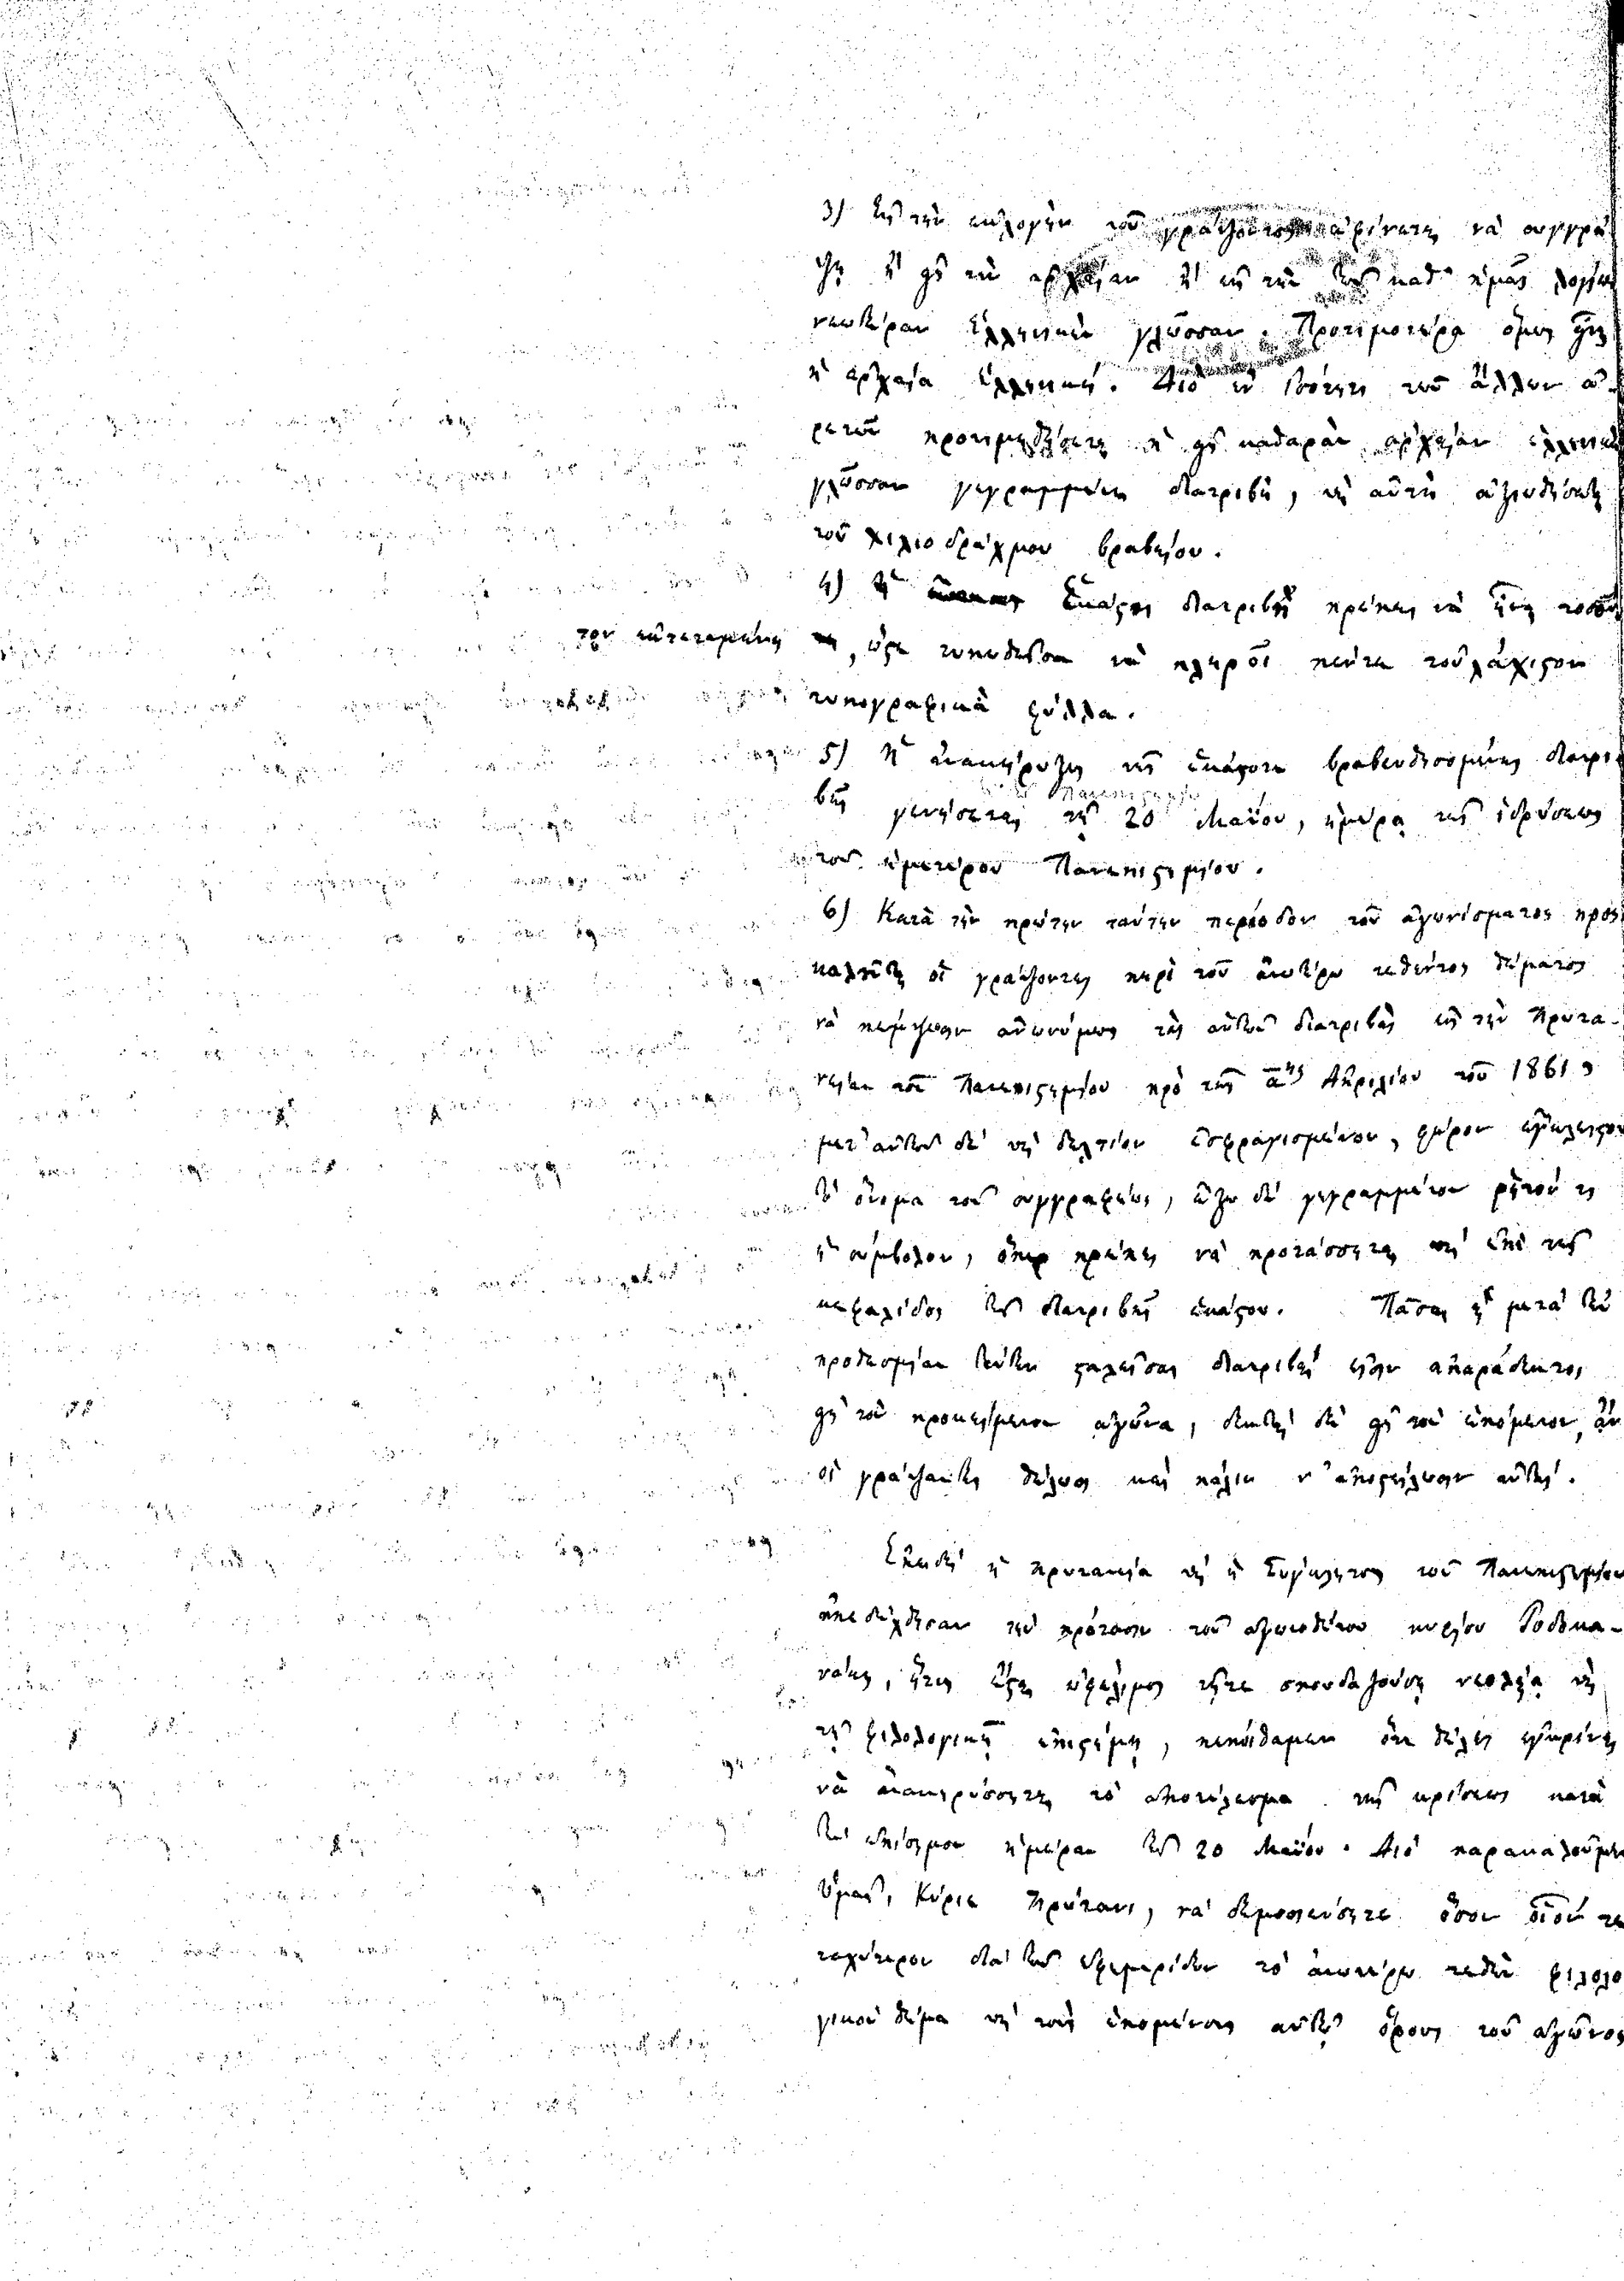 3) Εἰς τὴν ἐκλογὴν τοῦ γράψοντος ἀφίνεται νὰ συγγρά
ψῃ ἢ εἰς τὴν ἀρχαίαν ἢ εἰς τὴν τῶν καθ' ἡμᾶς λογίων
νεωτέραν ἑλληνικὴν γλῶσσαν. Προτιμοτέρα ὅμως εἶναι
ἡ ἀρχαία ἑλληνική. Διὸ ἐν ἰσότητι τῶν ἄλλων ἀ-
ρετῶν προτιμηθήσεται ἡ εἰς καθαρὰν ἀρχαίαν ἑλληνικὴν
γλῶσσαν γεγραμμένη διατριβὴ, καὶ αὐτὴ ἀξιωθήσεται
τοῦ χιλιοδράχμου βραβείου.
4) Ἡ ἑκάστη διατριβὴ πρέπει νὰ εἶναι τοσοῦ
τον ἐκτεταμένη, ὥστε τυπωθεῖσα νὰ πληροῖ πέντε τοὐλάχιστον
τυπογραφικὰ φύλλα.
5) Ἡ ἀνακήρυξις τῆς ἑκάστοτε βραβευθησομένης διατρι
βῆς γενήσεται τῇ 20 Μαΐου, ἡμέρᾳ τῆς ἱδρύσεως
τοῦ ἡμετέρου Πανεπιστημίου.
6) Κατὰ τὴν πρώτην ταύτην περίοδον τοῦ ἀγωνίσματος προς
καλοῦνται οἱ γράψοντες περὶ τοῦ ἀνωτέρω τεθέντος θέματος
νὰ πέμψωσιν ἀνωνύμως τὰς αὐτῶν διατριβὰς εἰς τὴν Πρυτα-
νείαν τοῦ Πανεπιστημίου πρὸ τῆς α^ης Ἀπριλίου τοῦ 1861,
μετ' αὐτῶν δὲ καὶ δελτίον ἐσφραγισμένον, φέρον ἐγκλειστον
τὸ ὄνομα τοῦ συγγραφέως, ἔξω δὲ γεγραμμένον ῥητόν τι
ἢ σύμβολον, ὅπερ πρέπει νὰ προτάσσηται καὶ ἐπὶ τῆς
κεφαλίδος τῆς διατριβῆς ἑκάστου. Πᾶσαι αἱ μετὰ τὴν
προθεσμίαν ταύτην σταλεῖσαι διατριβαὶ εἰσὶν ἀπαράδεκτοι
εἰς τὸν προκείμενον ἀγῶνα, δεκταὶ δὲ εἰς τὸν ἑπόμενον, ἂν
οἱ γράψαντες θέλωσι καὶ πάλιν ν' ἀποστείλωσιν αὐτάς.
Ἐπειδὴ ἡ Πρυτανεία καὶ ἡ Σύγκλητος τοῦ Πανεπιστημίου
ἀπεδέχθησαν τὴν πρότασιν τοῦ ἀγωνοθέτου κυρίου Ῥοδοκα-
νάκη, ἥτις ἔσται ὠφέλιμος τῇτε σπουδαζούσῃ νεολαίᾳ καὶ
τῇ φιλολογικῇ ἐπιστήμῃ, πεποίθαμεν ὅτι θέλει ἐγκρίνει
νὰ ἀνακηρύσσηται τὸ ἀποτέλεσμα τῆς κρίσεως κατὰ
τὴν ἐπίσημον ἡμέραν τῆς 20 Μαΐου. Διὸ παρακαλοῦμεν
Ὑμᾶς, Κύριε Πρύτανι, νὰ δημοσιεύσητε ὅσον οἷόν τε
ταχύτερον διὰ τῶν ἐφημερίδων τὸ ἀνωτέρω τεθὲν φιλολο
γικὸν θέμα καὶ τοὺς ἑπομένους αὐτῷ ὅρους τοῦ ἀγῶνος